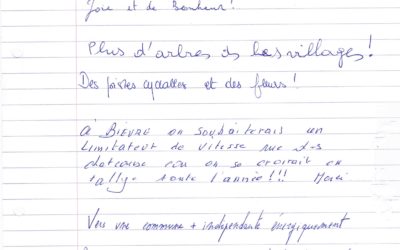 Joie et de Bonheur!
Plus d'arbres ds les villages!
Des pistes cyclables et des fleurs!
à BIEVRE on souhaiterais un
Limitateur de vitesse
chaussée car on se croirait en
rallye toute l'année!!! Merci
Vers une commune + indépendante énergiquement